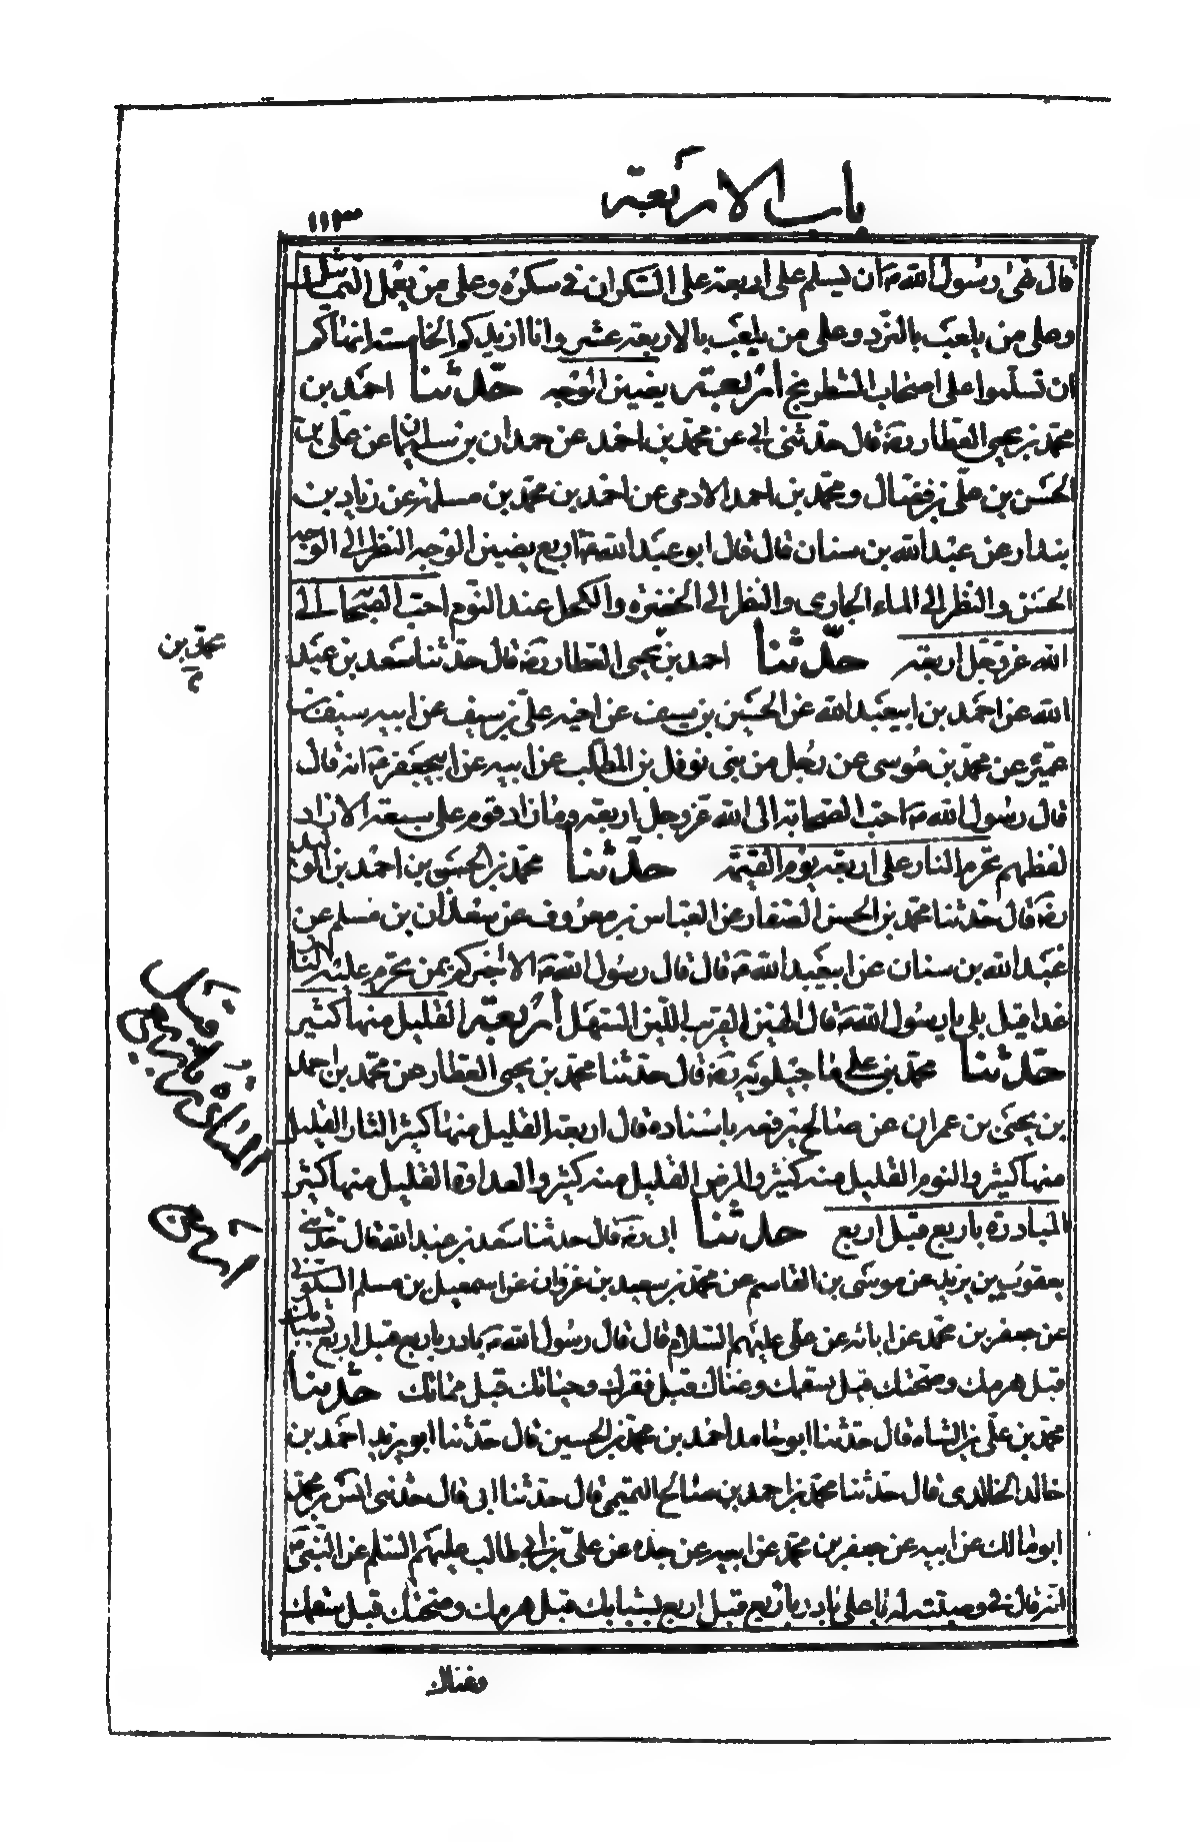 باب الاربعة
١١٣
قال نهى رسول الله ص ان يسلم على اربعة على السكران في سكره وعلى من يعمل التماثيل
وعلى من يلعب بالنرد وعلى من يلعب بالاربعة عشر وانا ازيدكم الخامسة انهاكم
ان تسلموا على اصحاب الشطرنج اربعة يضين الوجه حدثنا احمد بن
محمد بن يحيى العطار ره قال حدثني ابي عن محمد بن احمد عن حمدان بن سليمان عن علي بن
الحسن بن علي بن فضال ومحمد بن احمد الادمي عن احمد بن محمد بن مسلمة عن زياد بن
بندار عن عبد الله بن سنان قال قال ابو عبد الله ع اربع يضين الوجه النظر الى الوجه
الحسن والنظر الى الماء الجاري والنظر الى الخضرة والكحل عند النوم احب الصحابة الى
الله عز وجل اربعة حدثنا احمد بن يحيى العطار ره قال حدثنا سعد بن عبد
الله عن احمد بن ابيعبد الله عن الحسين بن سيف عن اخيه علي بن سيف عن ابيه سيف بن
عميرة عن محمد بن موسى عن رجل من بني نوفل بن المطلب عن ابيه عن ابيجعفر ع انه قال
قال رسول الله ص احب الصحابة الى الله عز وجل اربعة وما زاد قوم على سبعة الا زاد
لغطهم تحرم النار على اربعة يوم القيمة حدثنا محمد بن الحسن بن احمد بن الوليد
ره قال حدثنا محمد بن الحسن الصفار عن العباس بن معروف عن سعدان بن مسلم عن
عبد الله بن سنان عن ابيعبد الله ع قال قال رسول الله ص الا اخبركم بمن تحرم عليه النار
غدا قيل بلى يا رسول الله ص قال الهين القريب اللين السهل اربعة القليل منها كثير
حدثنا محمد بن علي ماجيلويه ره قال حدثنا محمد بن يحيى العطار عن محمد بن احمد
بن يحيى بن عمران عن صالح يرفعه باسناده قال اربعة القليل منها كثير النار القليل
منها كثير والنوم القليل منه كثير والمرض القليل منه كثير والعداوة القليل منها كثير
المبادرة باربع قبل اربع حدثنا ابي ره قال حدثنا سعد بن عبد الله قال حدثني
يعقوب بن يزيد عن موسى بن القاسم عن محمد بن سعيد بن غزوان عن اسمعيل بن مسلم السكوني
عن جعفر بن محمد عن ابائه عن علي عليهم السلام قال قال رسول الله ص بادر باربع قبل اربع شبابك
قبل هرمك وصحتك قبل سقمك وغناك قبل فقرك وحياتك قبل مماتك حدثنا
محمد بن علي بن الشاه قال حدثنا ابو حامد احمد بن محمد بن الحسين قال حدثنا ابو يزيد احمد بن
خالد الخالدي قال حدثنا محمد بن احمد بن صالح التميمي قال حدثنا ابي قال حدثني انس بن محمد
ابو مالك عن ابيه عن جعفر بن محمد عن ابيه عن جده عن علي بن ابي طالب عليهم السلم عن النبي ص
انه قال في وصيته له يا علي بادر باربع قبل اربع بشبابك قبل هرمك وصحتك قبل سقمك
وغناك
محمد بن